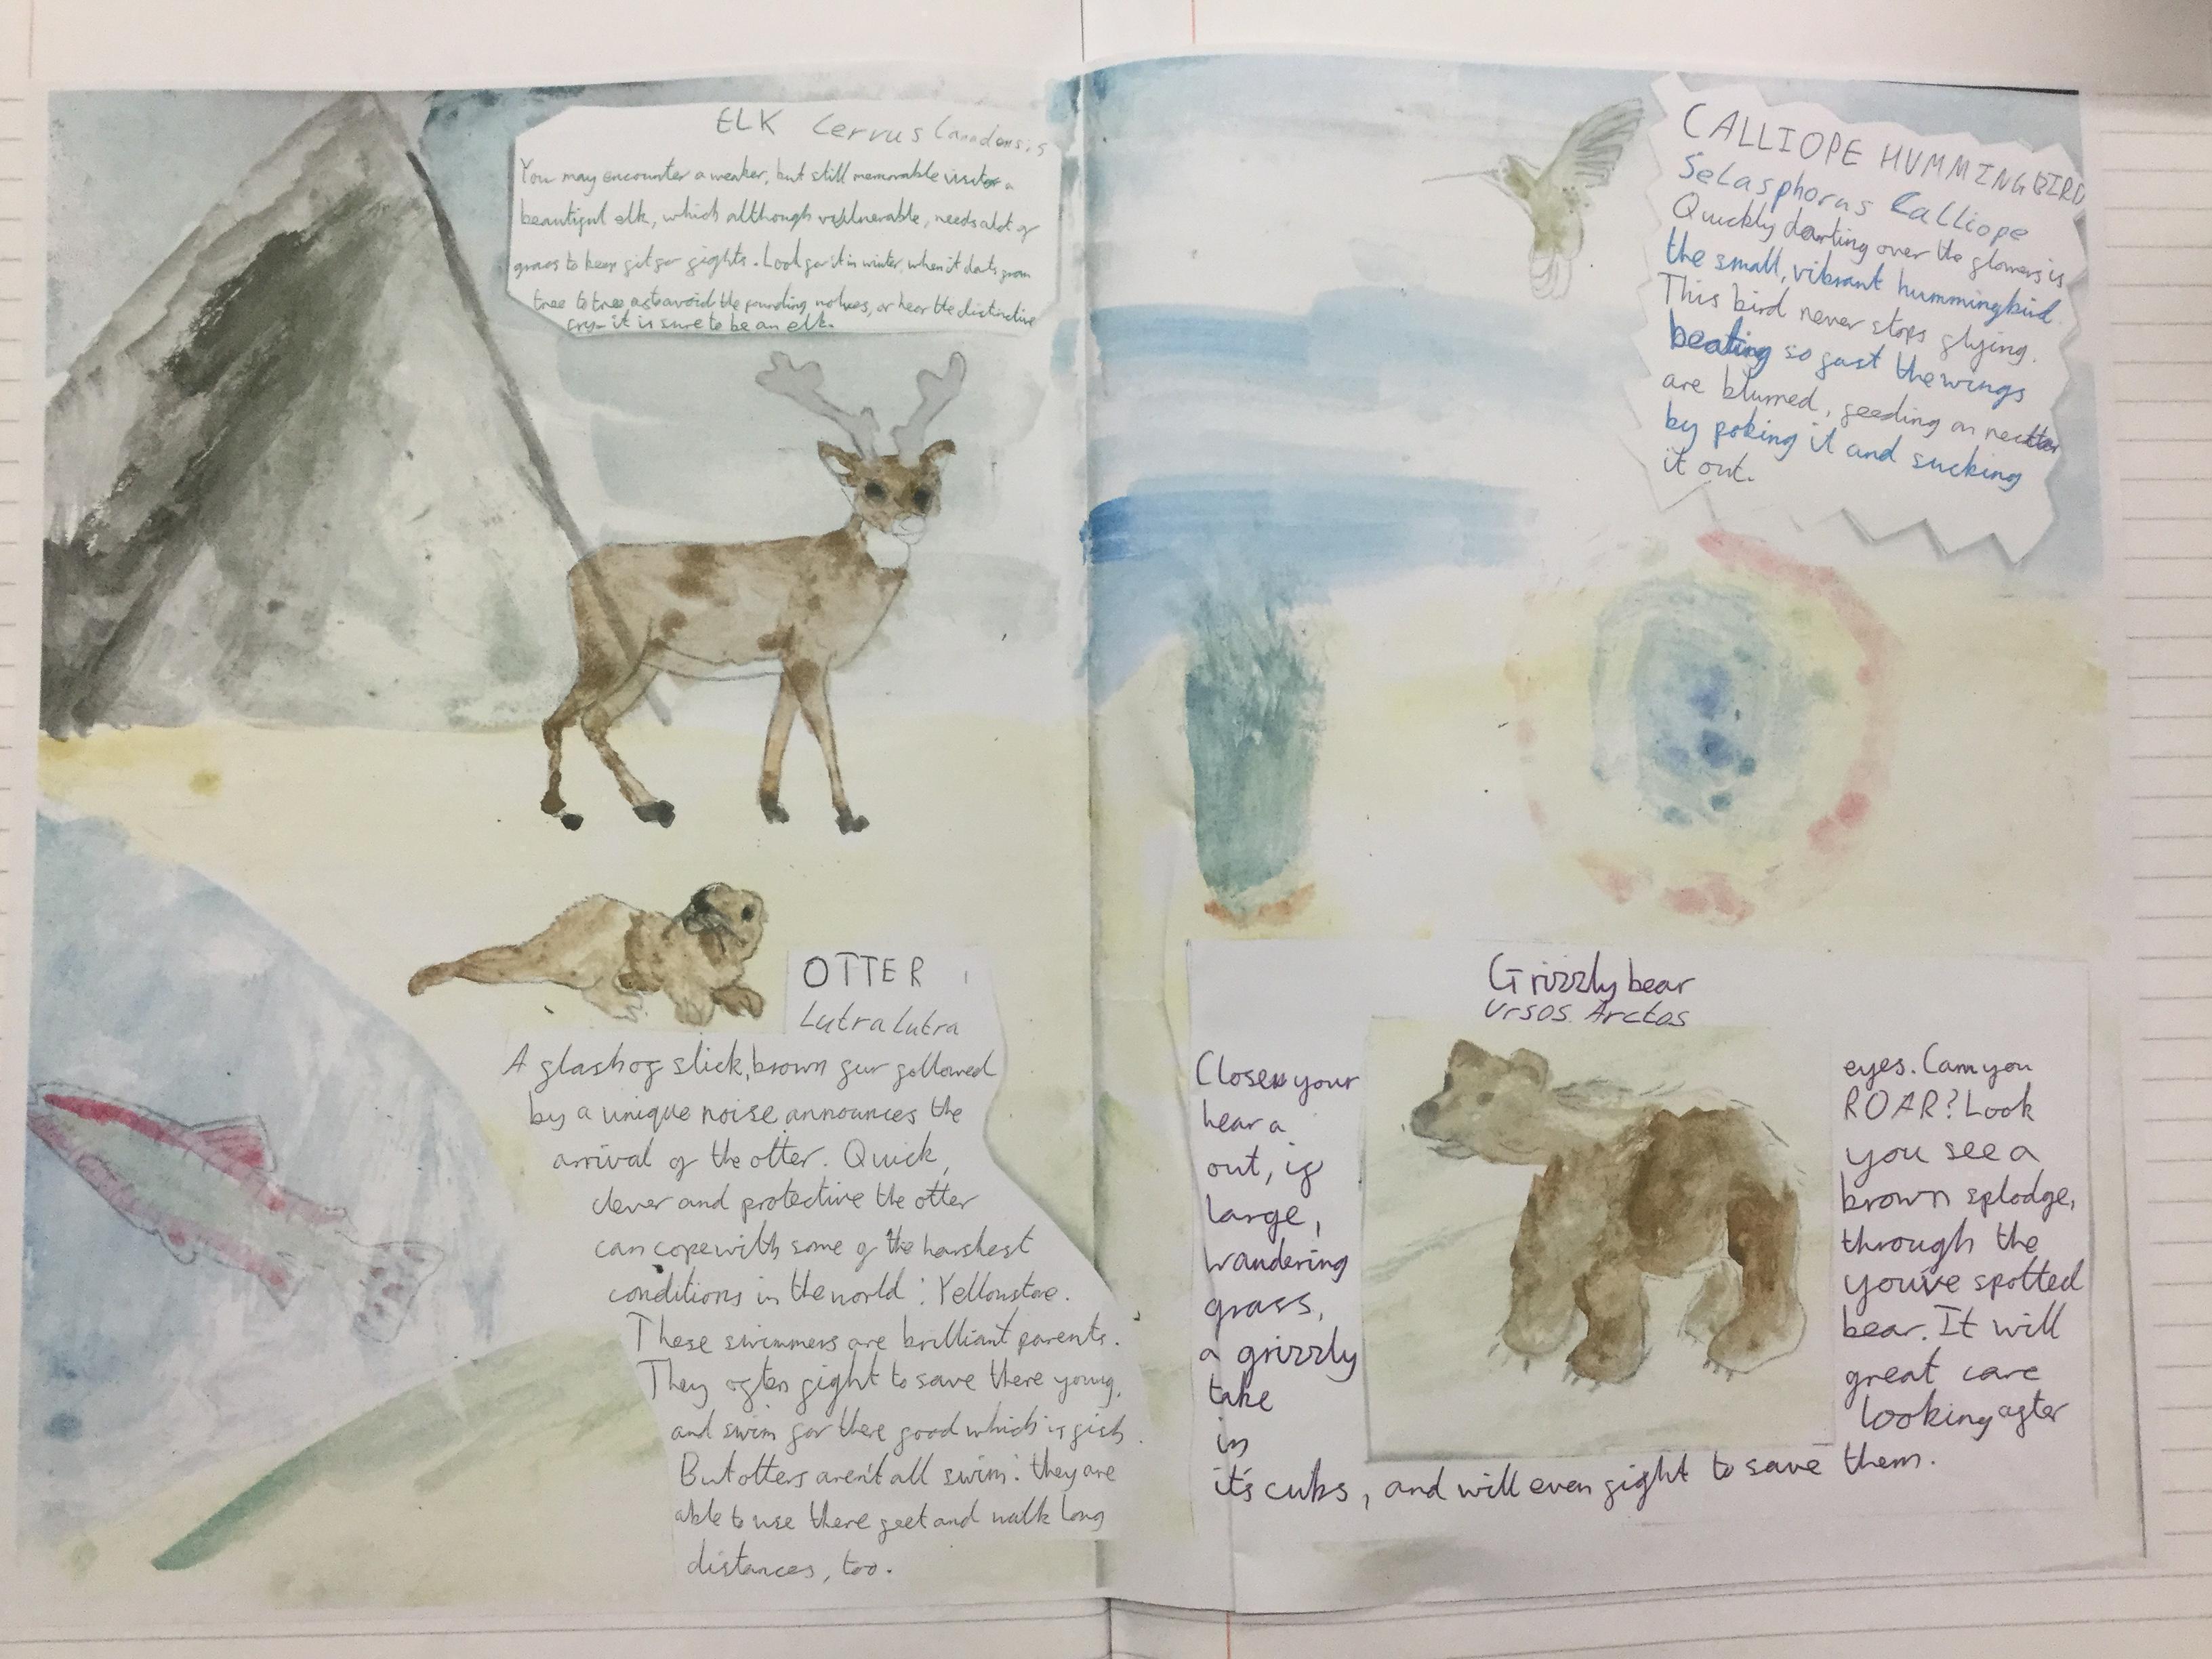 ELK Cervus Canadensis
You may encounter a weaker, but still memorable visitor a
beautiful elk, which although vulnerable, needs alot of
grass to keep fit for fights. Look for it in winter, when it darts from
tree to tree, as to avoid the pounding wolves, or hear the distinctive
cry - it is sure to be an elk.
OTTER
Lutra lutra
A flash of slick, brown fur followed
by a unique noise announces the
arrival of the otter. Quick,
clever and protective the otter
can cope with some of the harshest
conditions in the world: Yellowstone.
These swimmers are brilliant parents.
They often fight to save there young,
and swim for there good which is fish.
But otters aren't all swim: they are
able to use there feet and walk long
distances, too.
CALLIOPE HUMMINGBIRD
Selasphorus Calliope
Quickly darting over the flowers is
the small, vibrant hummingbird.
This bird never stops flying.
beating so fast the wings
are blurred, feeding on nectar
by poking it and sucking
it out.
Grizzly bear
Ursos Arctos
Close your eyes. Can you
hear a ROAR? Look
out, if you see a
large, brown splodge,
wandering through the
grass, you've spotted
a grizzly bear. It will
take great care
in looking after
it's cubs, and will even fight to save them.